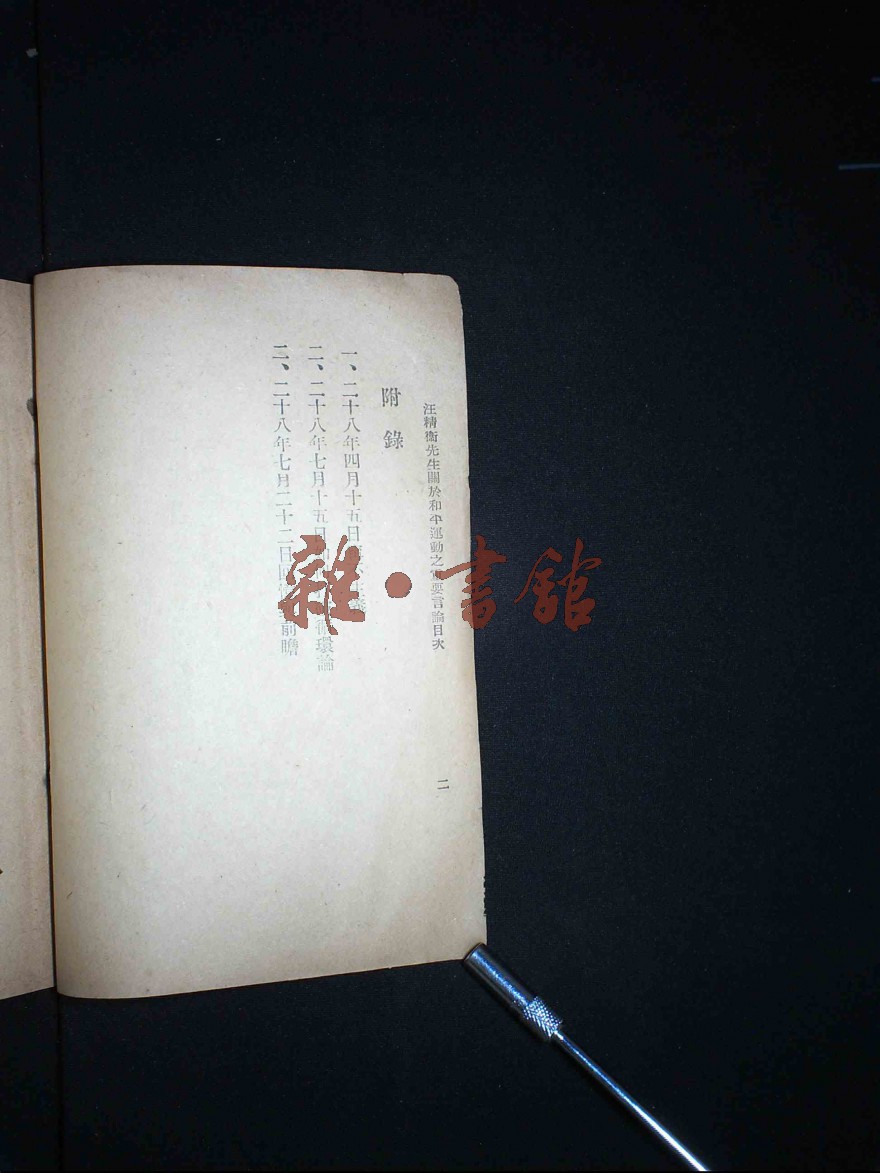 汪精衞先生關於和平運動之重要言論目次
二
附錄
一、二十八年四月十五日
二、二十八年七月十五日 循環論
三、二十八年七月二十二日回 前瞻
雜・書館